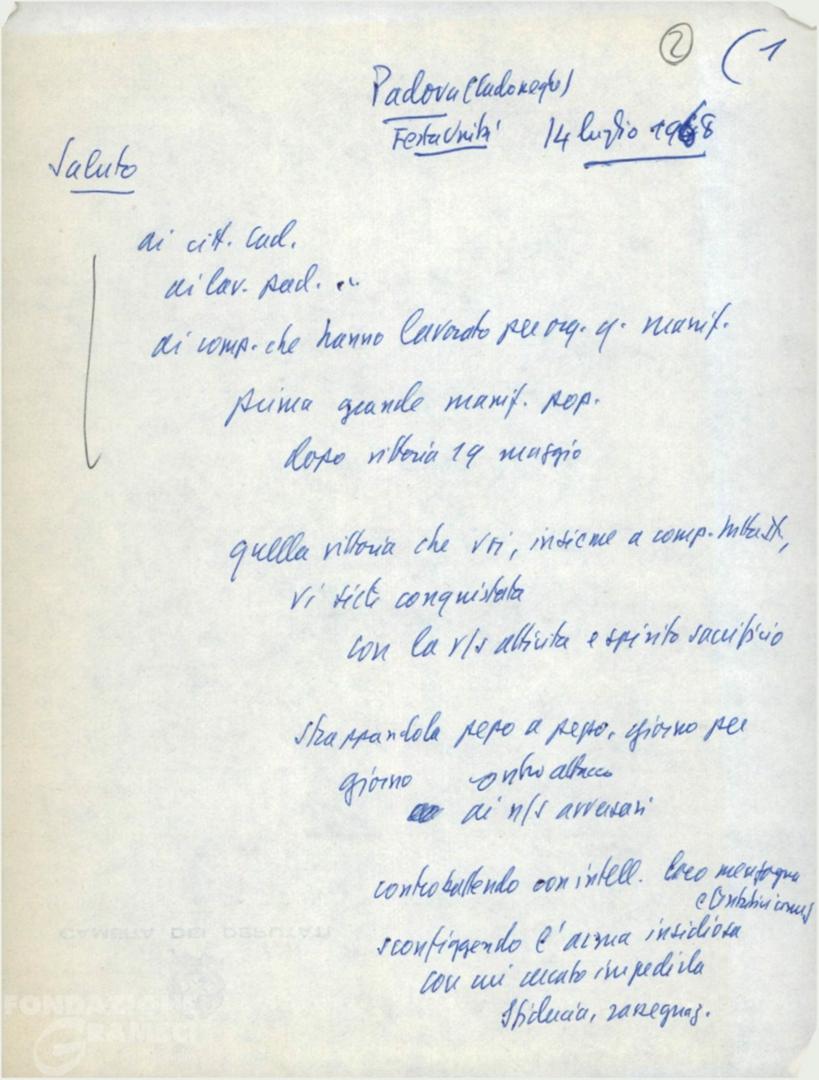 2 (1
Padova (Cadoneghe)
Festa Unità 14 luglio 1968
Saluto
ai citt. Cad.
ai lav. pad. ..
ai comp. che hanno lavorato per org. q. manif.
prima grande manif. pop.
dopo vittoria 19 maggio
quella vittoria che voi, insieme a comp.
vi siete conquistata
con la v/s attività e spirito sacrificio
strappandola pezzo a pezzo, giorno per
giorno contro attacco
ai n/s avversari
controbattendo con intell. loro menzogna
sconfiggendo l'arma insidiosa
con cui cercato impedirla
sfiducia, rassegnaz.
CAMERA DEI DEPUTATI
FONDAZIONE
GRAMSCI